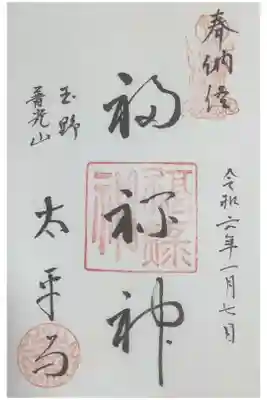 奉納経
令和六年一月七日
福禄神
玉野
普光山
太平寺